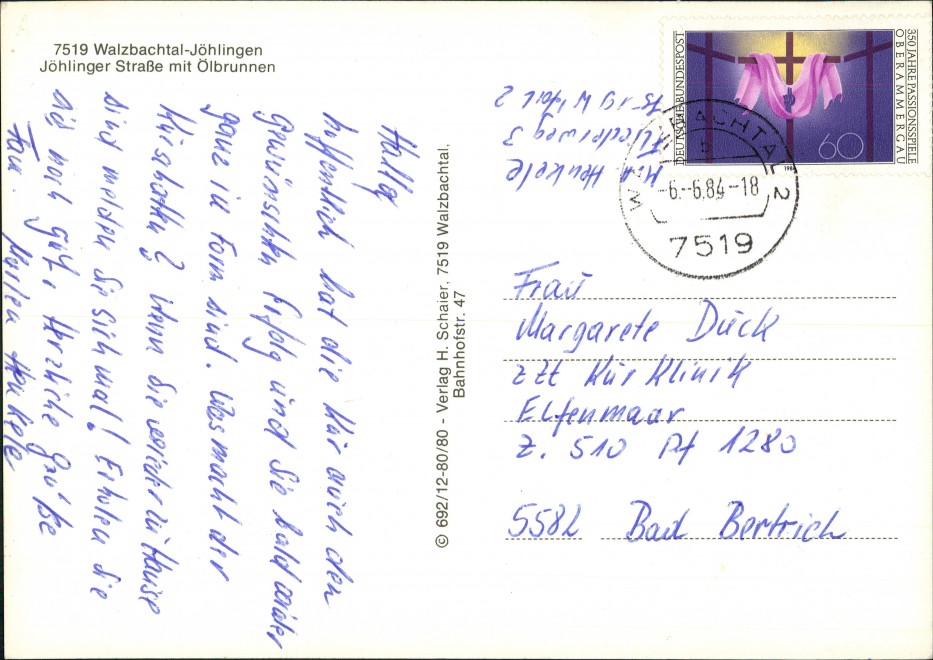 7519 Walzbachtal-Jöhlingen
Jöhlinger Straße mit Ölbrunnen
Hallo
hoffentlich hat die Kur auch den
gewünschten Erfolg und Sie bald wieder
ganz in Form sind. Was macht der
Haushalt? Wenn Sie wieder zu Hause
sind melden Sie sich mal! Erholen Sie
sich noch gut, Herzliche Grüße
Fam.
© 692/12-80/80 - Verlag H. Schaier, 7519 Walzbachtal,
Bahnhofstr. 47
Fliederweg 3
DEUTSCHE BUNDESPOST
350 JAHRE PASSIONSSPIELE
OBERAMMERGAU
60
WALZBACHTAL 2
-6.-6.84-18
7519
Frau
Margarete Dück
zZt Kurklinik
Elfenmaar
Z. 510 Pf 1280
5582 Bad Bertrich